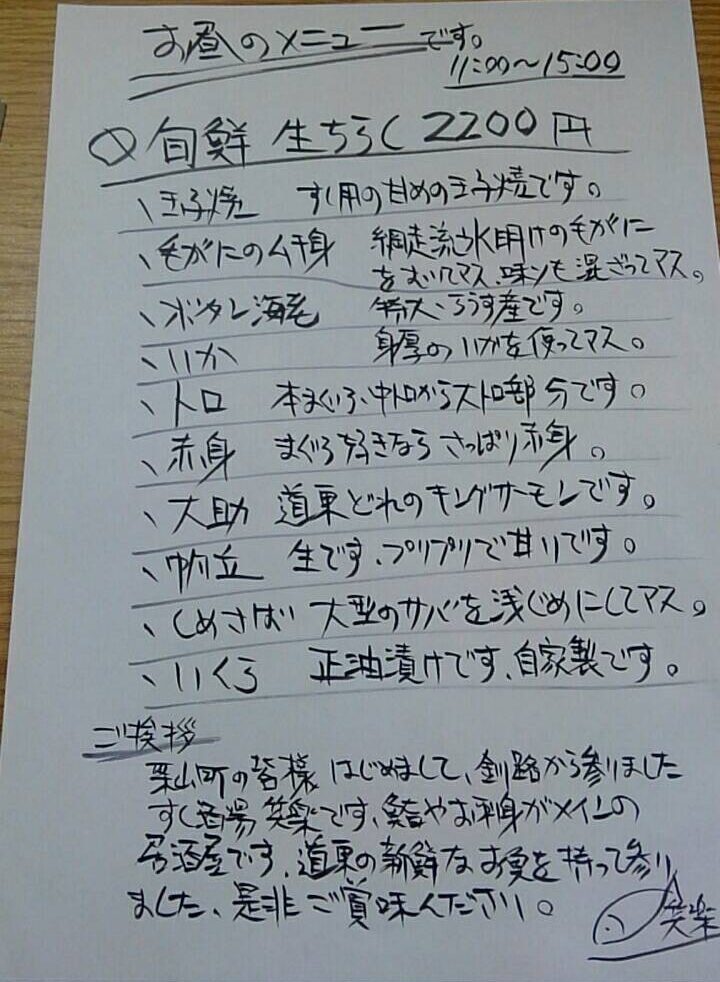 お昼のメニューです。
11:00〜15:00
旬鮮 生ちらし 2200円
、玉子焼 すし用の甘めの玉子焼です。
、毛がにのムキ身 網走流氷明けの毛がに
をむいてマス、味ソも混ざってマス。
、ボタン海老 特大、ろうす産です。
、いか 身厚のいかを使ってマス。
、トロ 本まぐろ、中トロから大トロ部分です。
、赤身 まぐろ好きなら さっぱり赤身。
、大助 道東どれのキングサーモンです。
、帆立 生です、プリプリで甘いです。
、しめさば 大型のサバを浅じめにしてマス。
、いくら 正油漬けです、自家製です。
ご挨拶
栗山町の皆様 はじめまして、釧路から参りました
すし酒場 笑楽です、鮨やお刺身がメインの
居酒屋です、道東の新鮮なお魚を持って参り
ました、是非ご賞味ください。
笑楽